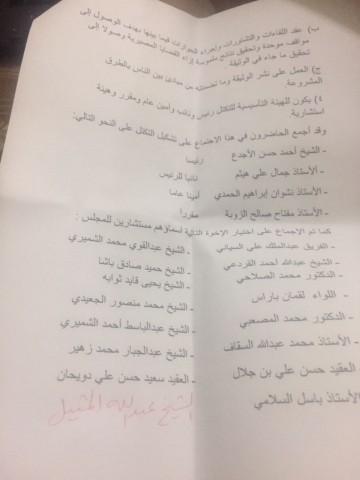 ب) عقد اللقاءات والتشاورات وإجراء الحوارات فيما بينها بهدف الوصول إلى
مواقف موحدة وتحقيق نتائج ملموسة إزاء القضايا المصيرية وصولا إلى
تحقيق ما جاء في الوثيقة.
ج) العمل على نشر الوثيقة وما تضمنته من مبادئ بين الناس بالطرق
المشروعة.
٤) يكون للهيئة التأسيسية للتكتل رئيس ونائب وأمين عام ومقرر وهيئة
استشارية.
وقد أجمع الحاضرون في هذا الاجتماع على تشكيل التكتل على النحو التالي:
- الشيخ أحمد حسن الأجدع رئيسا
- الأستاذ جمال علي هيثم نائبا للرئيس
- الأستاذ نشوان إبراهيم الحمدي أمينا عاما
- الأستاذ مفتاح صالح الزوبة مقررا
كما تم الاجماع على اختيار الاخوة التالية أسماؤهم مستشارين للمجلس :
- الفريق عبدالملك علي السياني - الشيخ عبدالقوي محمد الشميري
- الشيخ عبدالله أحمد الفردعي - الشيخ حميد صادق باشا
- الدكتور محمد الصلاحي - الشيخ يحيى قايد ثوابه
- اللواء لقمان باراس - الشيخ محمد منصور الجعيدي
- الدكتور محمد المصعبي - الشيخ عبدالباسط أحمد الشميري
- الأستاذ محمد عبدالله السقاف - الشيخ عبدالجبار محمد زهير
العقيد حسن علي بن جلال - العقيد سعيد حسن علي دويحان
الأستاذ باسل السلامي الشيخ عبدالله